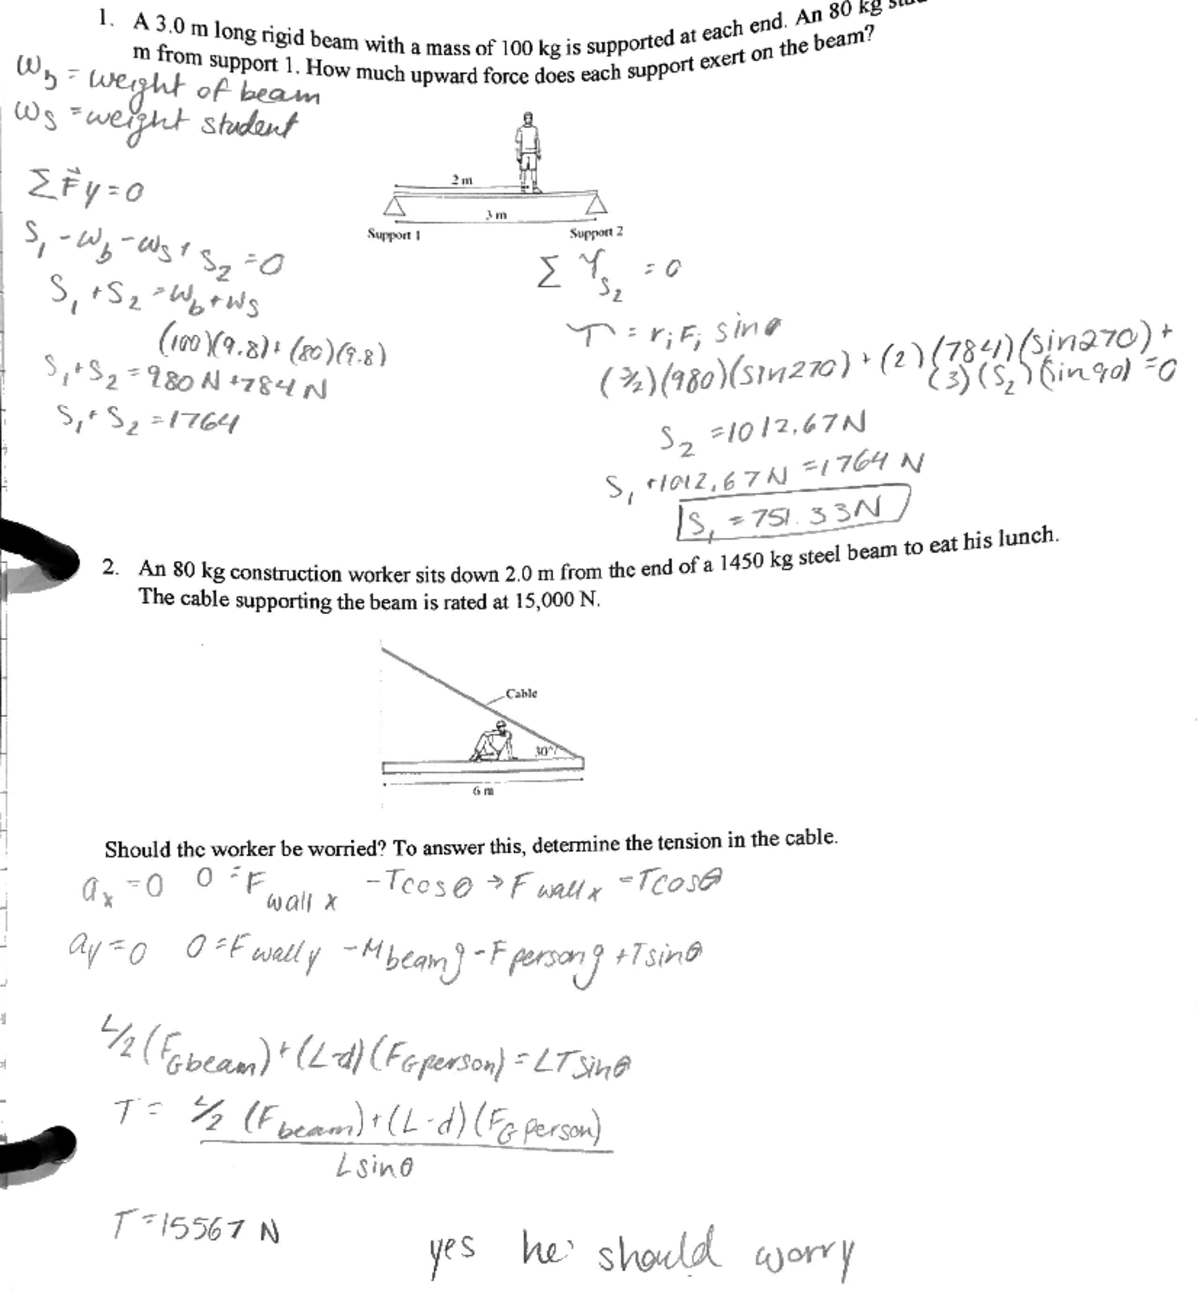 1. A 3.0 m long rigid beam with a mass of 100 kg is supported at each end. An 80 kg
m from support 1. How much upward force does each support exert on the beam?
Wb = weight of beam
Ws = weight student
ΣF⃗y = 0
S1 - Wb - Ws + S2 = 0
S1 + S2 = Wb + Ws
(100)(9.8) + (80)(9.8)
S1 + S2 = 980 N + 784 N
S1 + S2 = 1764
2 m
3 m
Support 1
Support 2
= 0
= riFi sinθ
(3/2)(980)(sin270) + (2)(784)(sin270) +
(3)(S2)(sin90) = 0
S2 = 1012.67N
S1 + 1012.67N = 1764 N
S1 = 751.33N
2. An 80 kg construction worker sits down 2.0 m from the end of a 1450 kg steel beam to eat his lunch.
The cable supporting the beam is rated at 15,000 N.
Cable
30°
6 m
Should the worker be worried? To answer this, determine the tension in the cable.
ax = 0 0 = Fwall x - Tcosθ → Fwallx = Tcosθ
ay = 0 0 = Fwally - Mbeamg - Fpersong + Tsinθ
L/2 (FGbeam) + (L-d)(FGperson) = LTsinθ
T = L/2 (Fbeam) + (L-d)(FGperson)
Lsinθ
T = 15567 N
yes he should worry